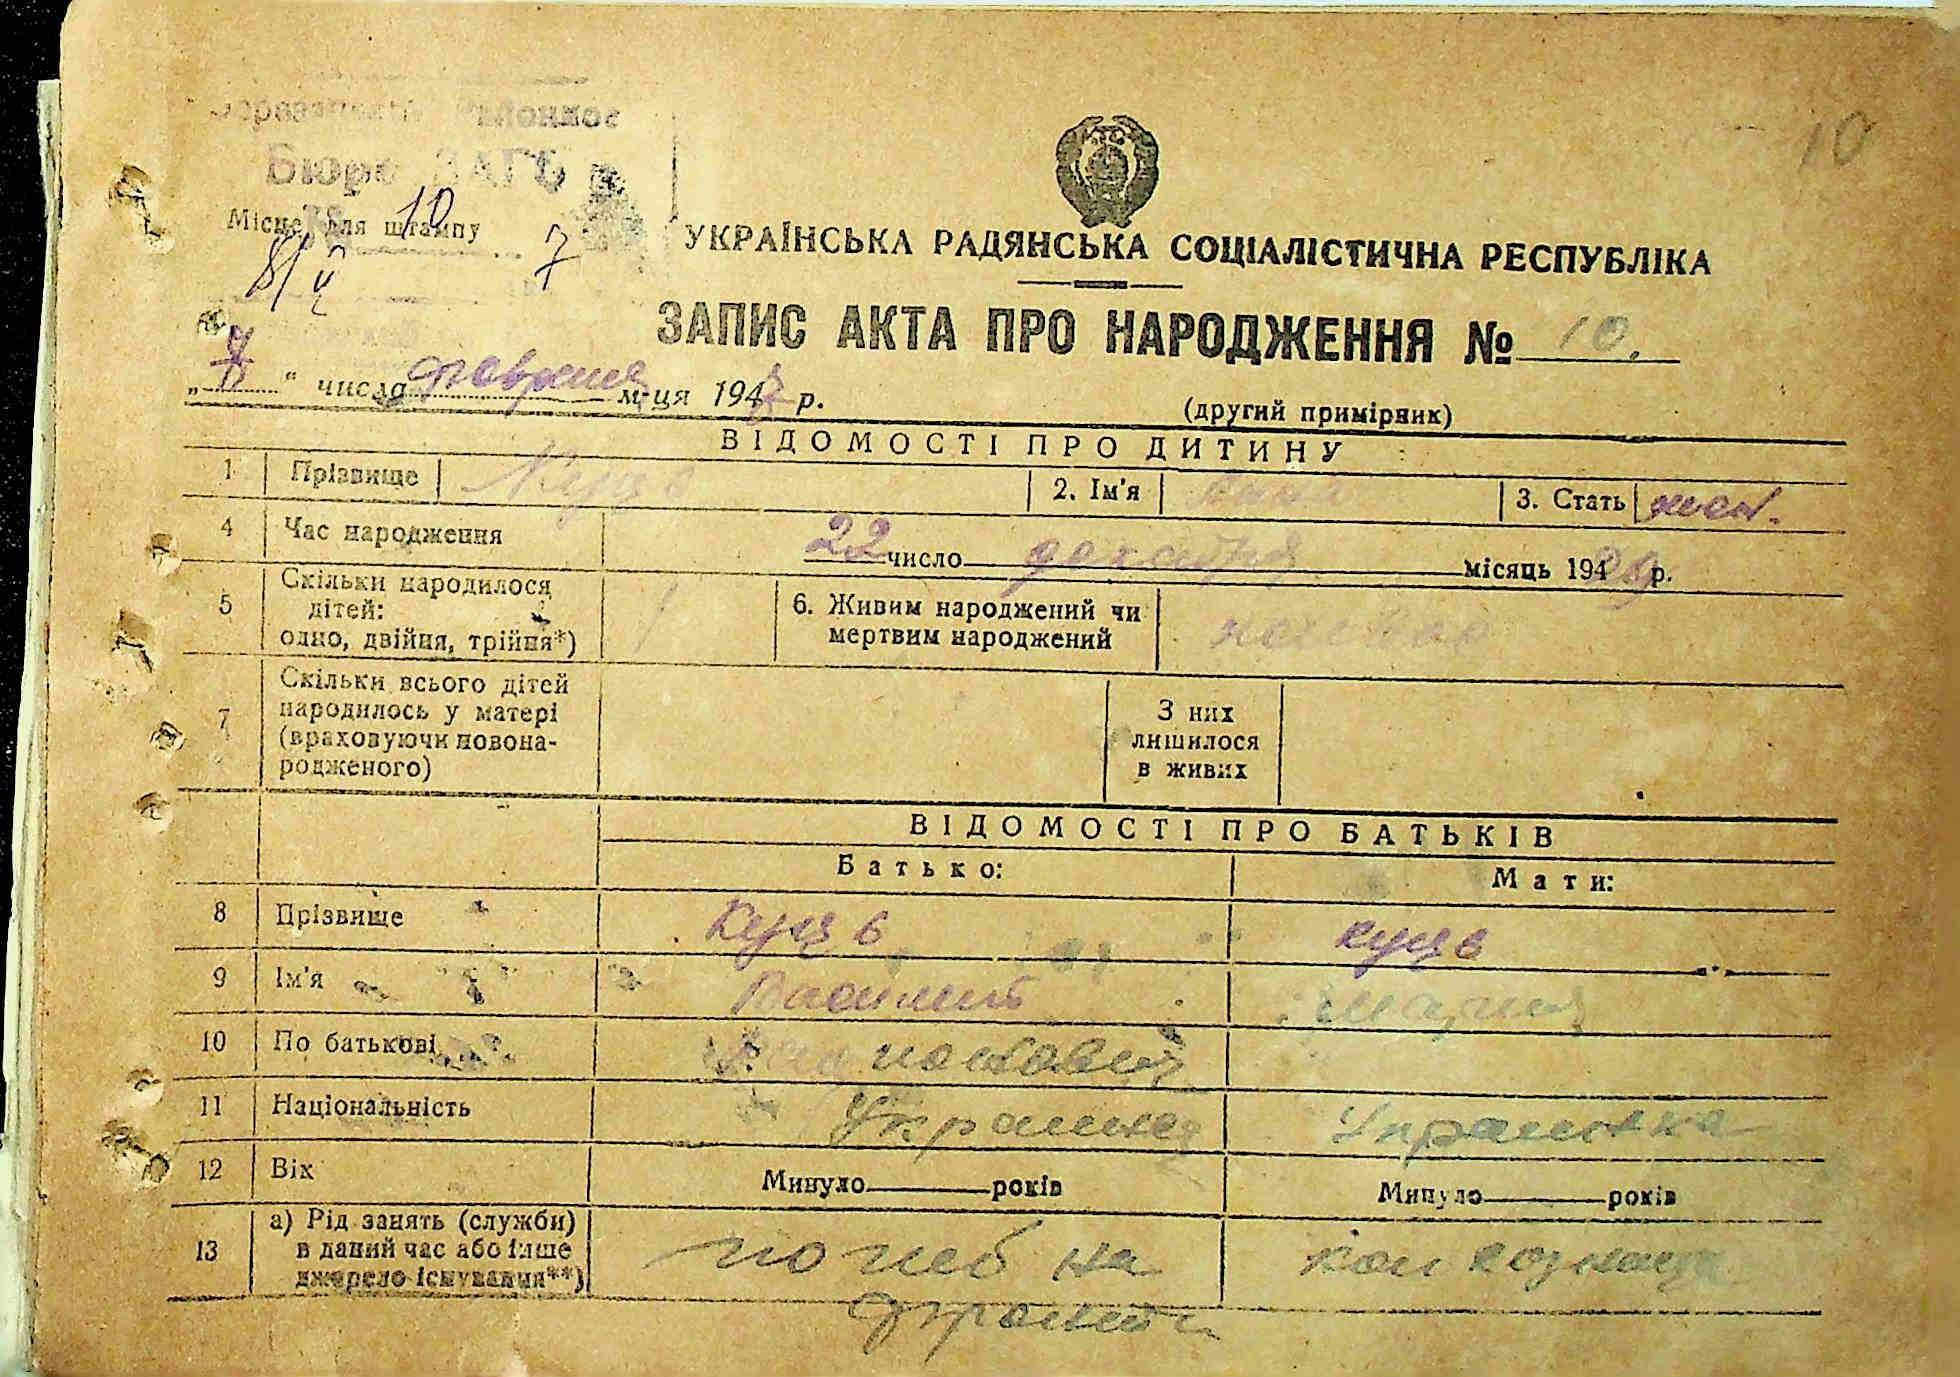 10
Бюро ЗАГС
Місце для штампу
10
8/V 7
УКРАЇНСЬКА РАДЯНСЬКА СОЦІАЛІСТИЧНА РЕСПУБЛІКА
ЗАПИС АКТА ПРО НАРОДЖЕННЯ № 10.
„7" числа февраля м-ця 194 р.
(другий примірник)
ВІДОМОСТІ ПРО ДИТИНУ
1 Прізвище 2. Ім'я 3. Стать жен.
4 Час народження 22 число декабря місяць 194 р.
5 Скільки народилося дітей: одно, двійня, трійня*) 1 6. Живим народжений чи мертвим народжений
7 Скільки всього дітей народилось у матері (враховуючи новонародженого) З них лишилося в живих
ВІДОМОСТІ ПРО БАТЬКІВ
Батько: Мати:
8 Прізвище Куць Куць
9 Ім'я Василий
10 По батькові
11 Національність Украинец Украинка
12 Вік Минуло років Минуло років
13 а) Рід занять (служби) в даний час або інше джерело існування**) погиб на колхозница
фронти